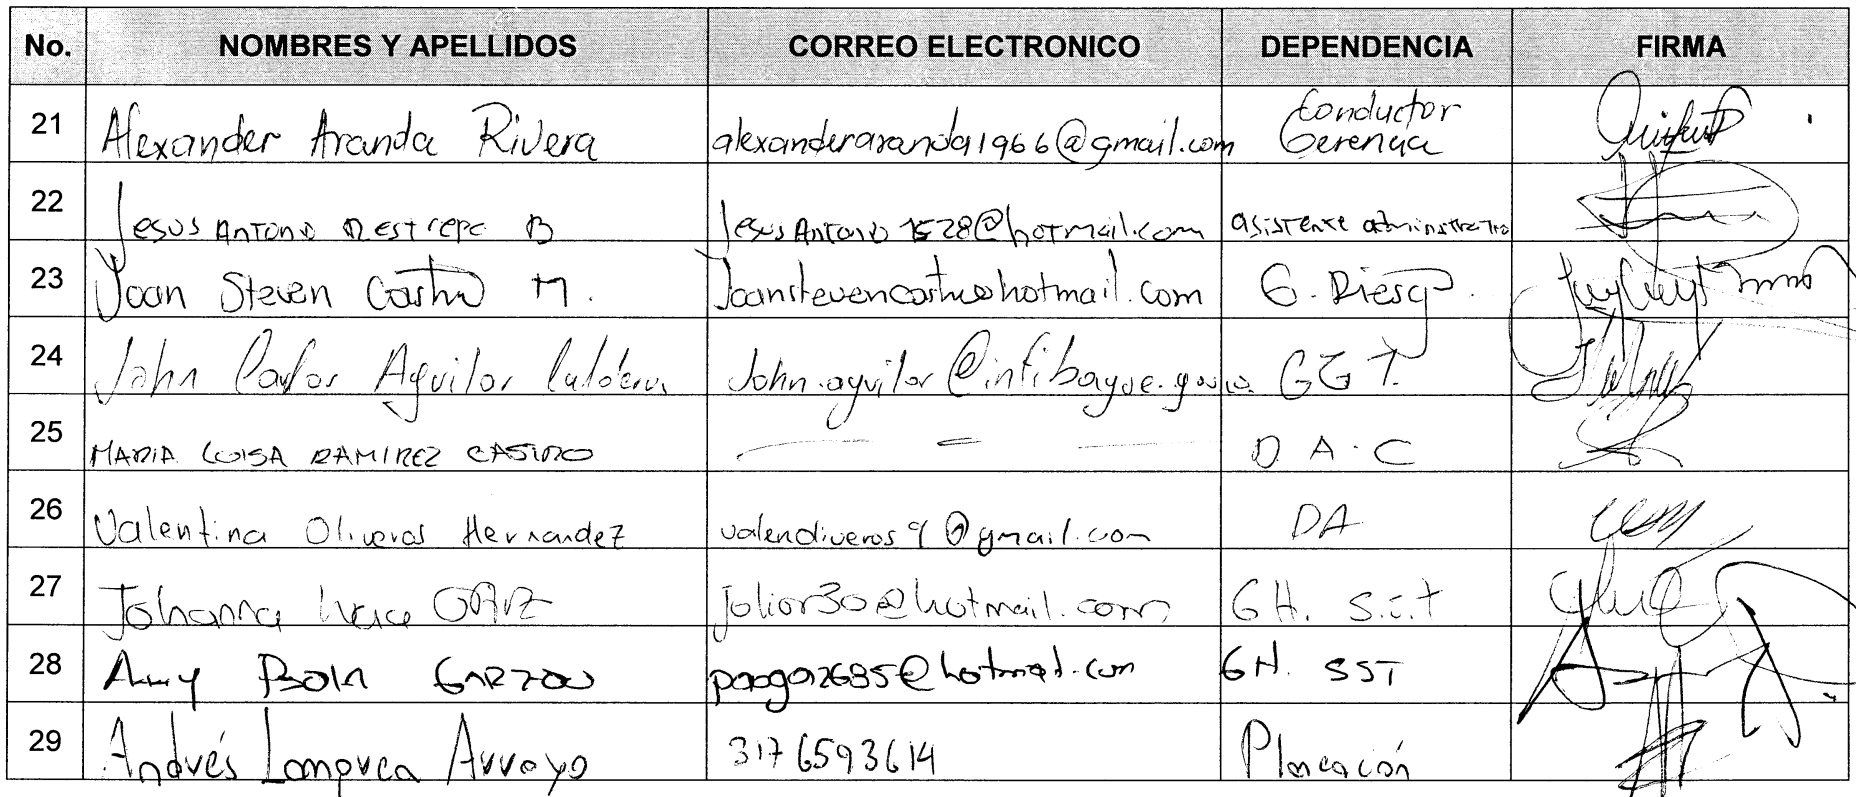 No. NOMBRES Y APELLIDOS CORREO ELECTRONICO DEPENDENCIA FIRMA
21 Alexander Aranda Rivera alexanderaranda1966@gmail.com Conductor Gerencia
22 Jesus Antonio Restrepo B Jesus Antonio 1528@hotmail.com asistente administrativo
23 Joan Steven Castro M. Joanstevencastro@hotmail.com G. Riesgo.
24 John Carlos Aguilar Calderon John.aguilar@infibague.gov.co GGT.
25 MARIA LUISA RAMIREZ CASTRO — = — D A.C
26 Valentina Oliveros Hernandez valenoliveros9@gmail.com DA
27 Johanna ORTIZ jolior30@hotmail.com GH. S.S.T
28 Amy Paola GARZON paoga2685@hotmail.com GH. SST
29 Andrés Lamprea Arroyo 3176593614 Planeación